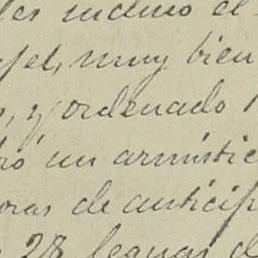 les incluso el
fel, muy bien
s, y ordenado
ró un armistic
oras de anticip
28 leguas d